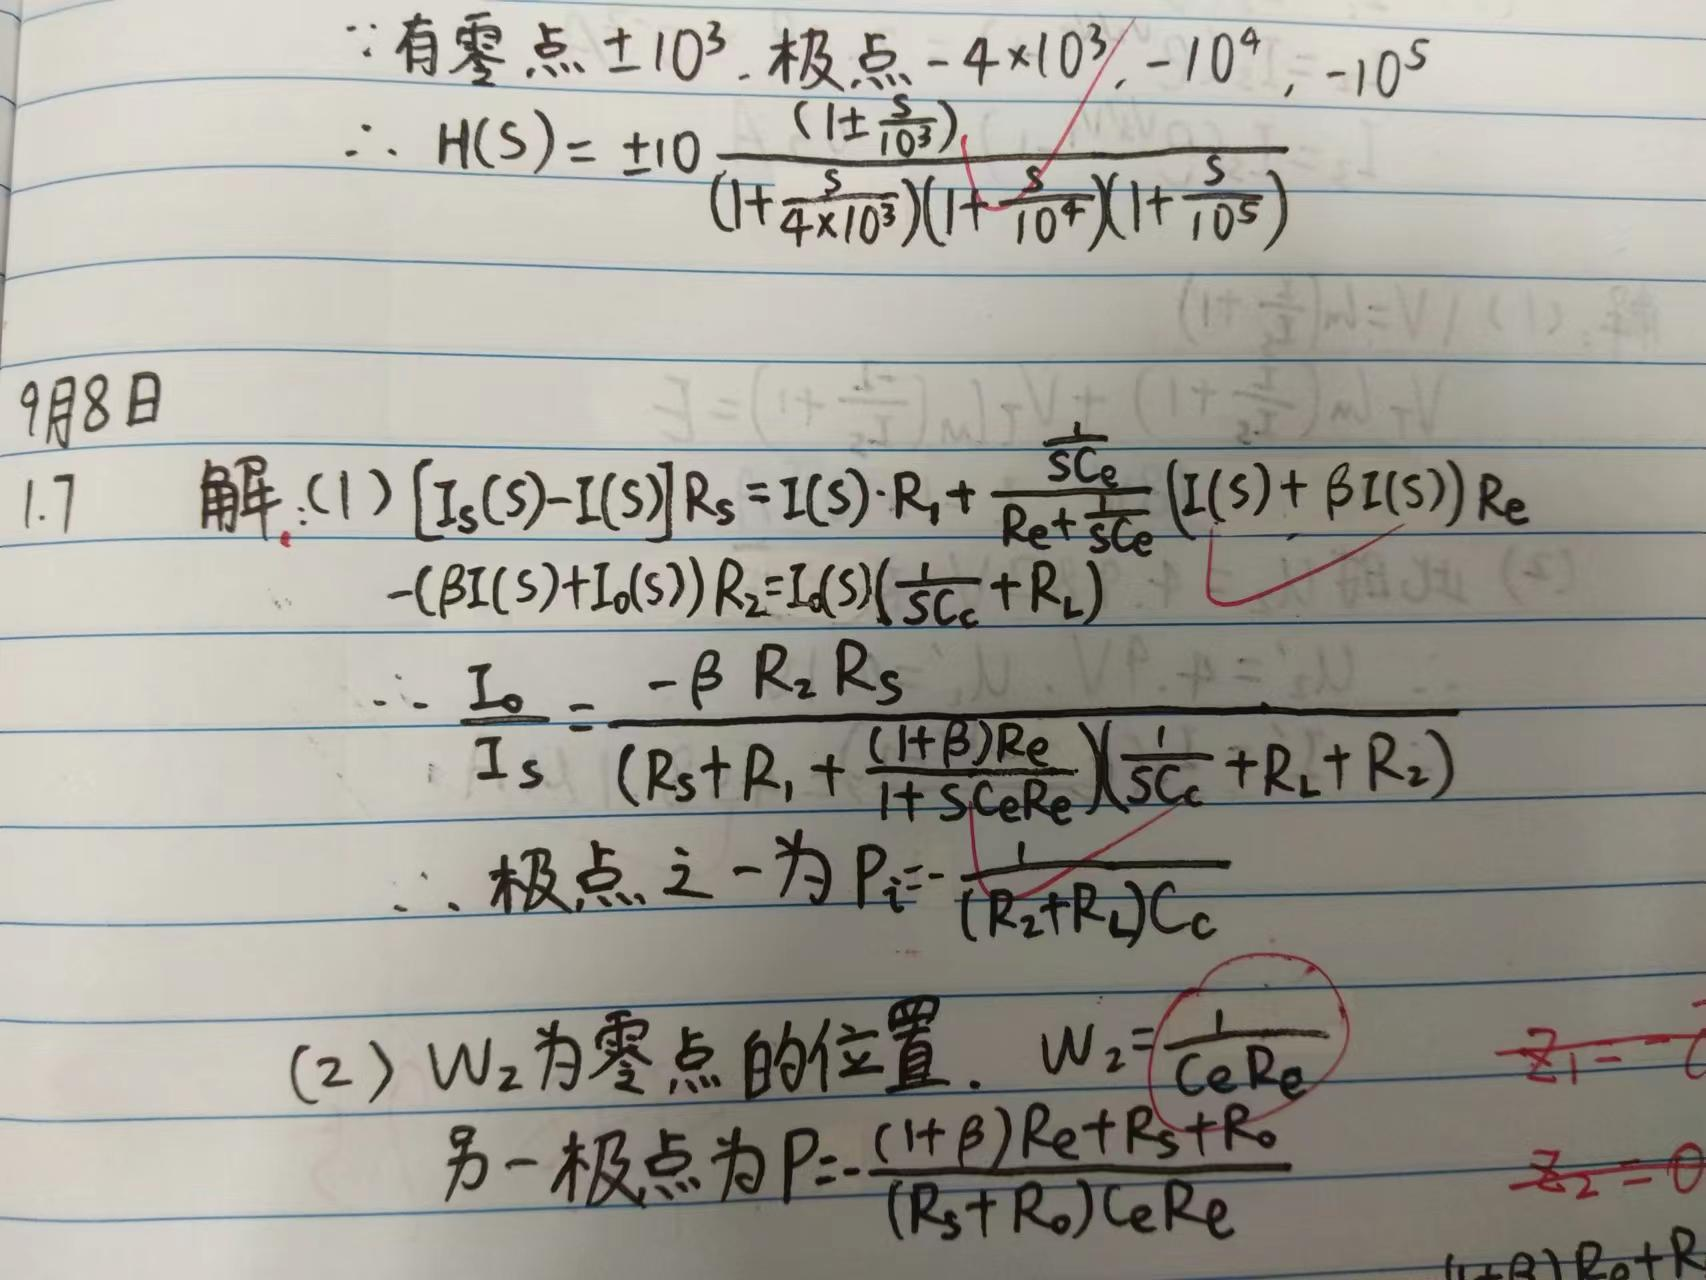 ∵有零点±10³. 极点-4×10³, -10⁴, -10⁵
∴ H(S) = ±10 (1±S/10³) / (1+S/(4×10³))(1+S/10⁴)(1+S/10⁵)
9月8日
1.7 解:(1) [Is(S)-I(S)]Rs = I(S)·R₁ + (1/SCe)/(Re+1/SCe) (I(S)+βI(S))Re
-(βI(S)+I₀(S))R₂=I₀(S)(1/SCc+RL)
∴ I₀/Is = -β R₂ Rs / (Rs+R₁+(1+β)Re/(1+SCeRe))(1/SCc+RL+R₂)
∴极点之一为Pi=-1/(R₂+RL)Cc
(2) W₂为零点的位置. W₂=1/CeRe
Z₁=-
另一极点为P=-((1+β)Re+Rs+R₀)/(Rs+R₀)CeRe
Z₂=0